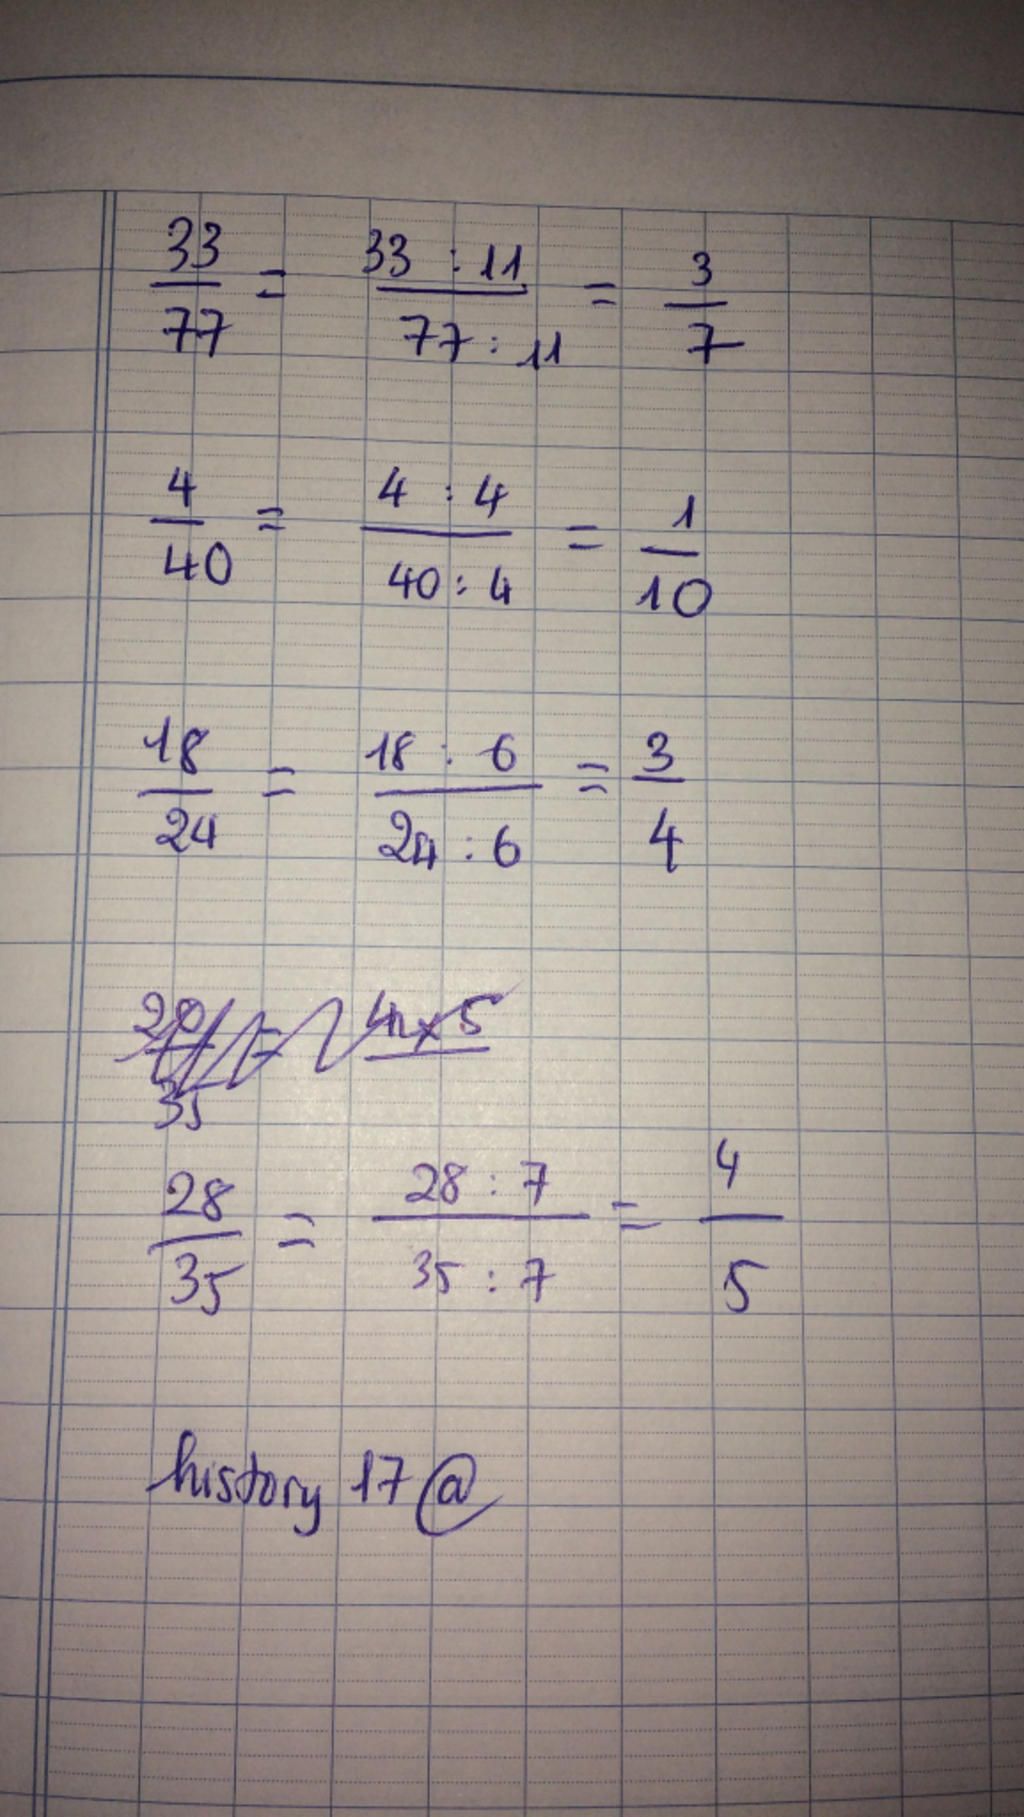 33/77 = 33 : 11/77 : 11 = 3/7
4/40 = 4 : 4/40 : 4 = 1/10
18/24 = 18 : 6/24 : 6 = 3/4
28/35 = 28 : 7/35 : 7 = 4/5
history 17 @